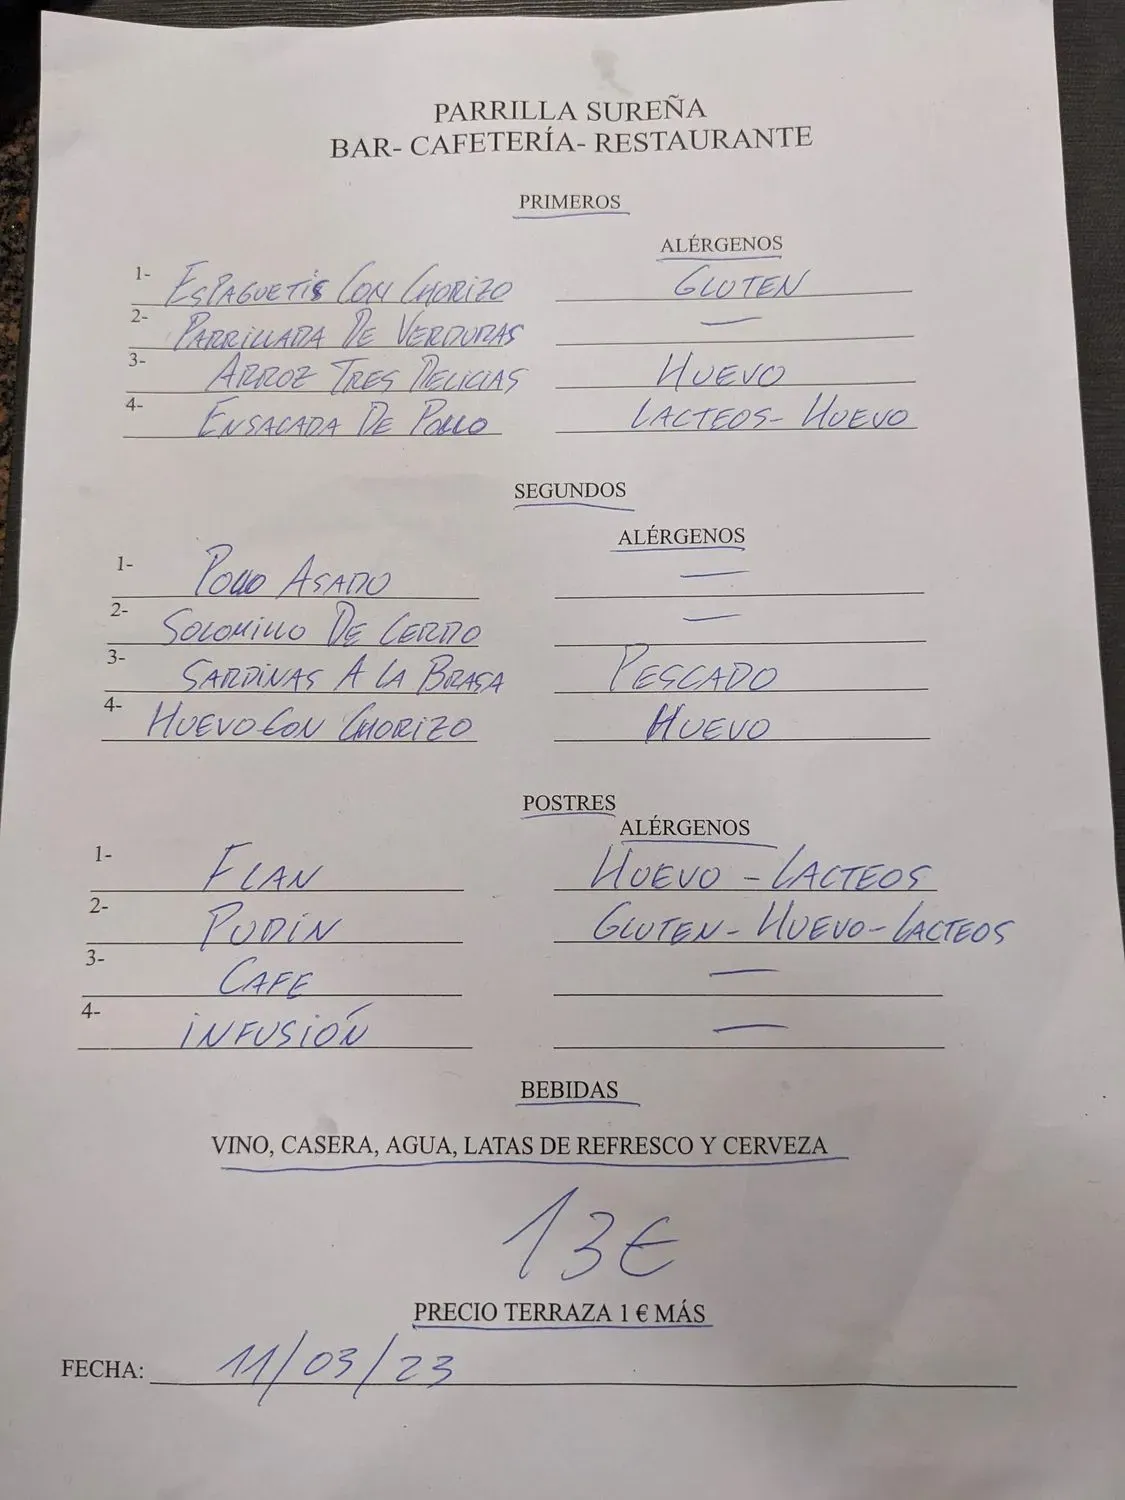 PARRILLA SUREÑA
BAR- CAFETERÍA- RESTAURANTE
PRIMEROS
ALÉRGENOS
1- ESPAGUETIS CON CHORIZO GLUTEN
2- PARRILLADA DE VERDURAS —
3- ARROZ TRES DELICIAS HUEVO
4- ENSALADA DE POLLO LACTEOS- HUEVO
SEGUNDOS
ALÉRGENOS
1- POLLO ASADO —
2- SOLOMILLO DE CERDO —
3- SARDINAS A LA BRASA PESCADO
4- HUEVO CON CHORIZO HUEVO
POSTRES
ALÉRGENOS
1- FLAN HUEVO - LACTEOS
2- PUDIN GLUTEN- HUEVO- LACTEOS
3- CAFE —
4- INFUSIÓN —
BEBIDAS
VINO, CASERA, AGUA, LATAS DE REFRESCO Y CERVEZA
13€
PRECIO TERRAZA 1 € MÁS
FECHA: 11/03/23